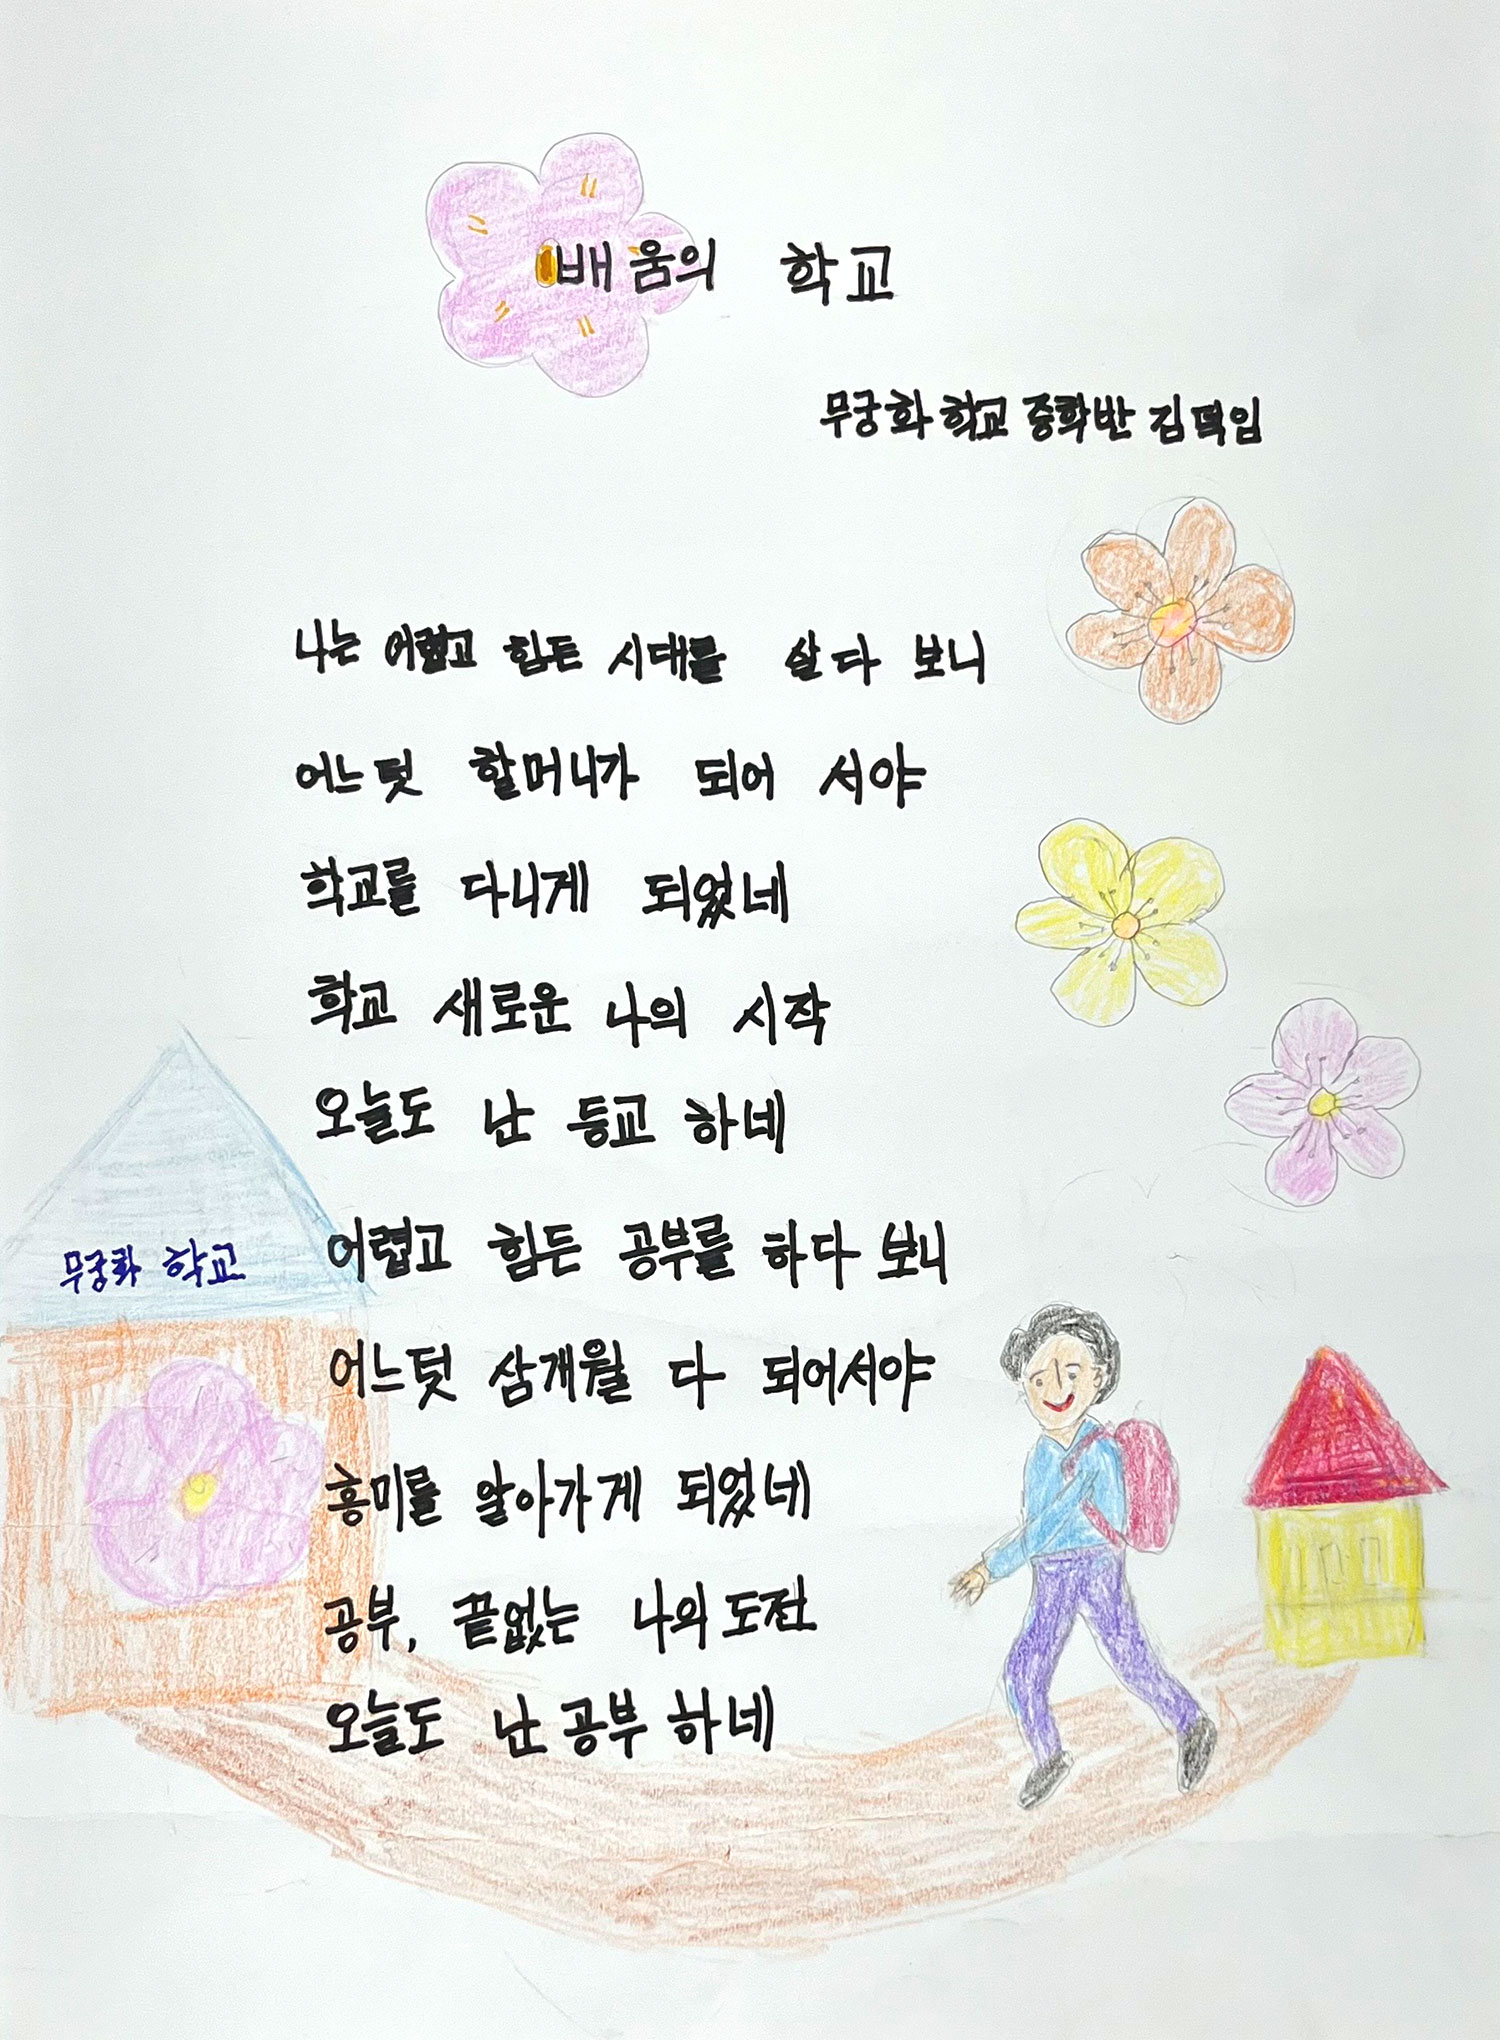 배움의 학교
무궁화 학교 중학반 김덕임
나는 어렵고 힘든 시대를 살다 보니
어느덧 할머니가 되어 서야
학교를 다니게 되었네
학교 새로운 나의 시작
오늘도 난 등교 하네
어렵고 힘든 공부를 하다 보니
어느덧 삼개월 다 되어서야
흥미를 알아가게 되었네
공부, 끝없는 나의 도전
오늘도 난 공부 하네
무궁화 학교